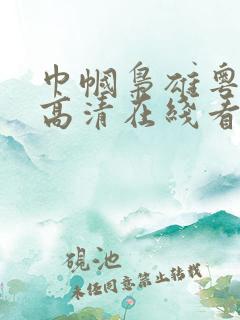 巾帼枭雄粤
高清在线看
砚池
未经同意禁止转载